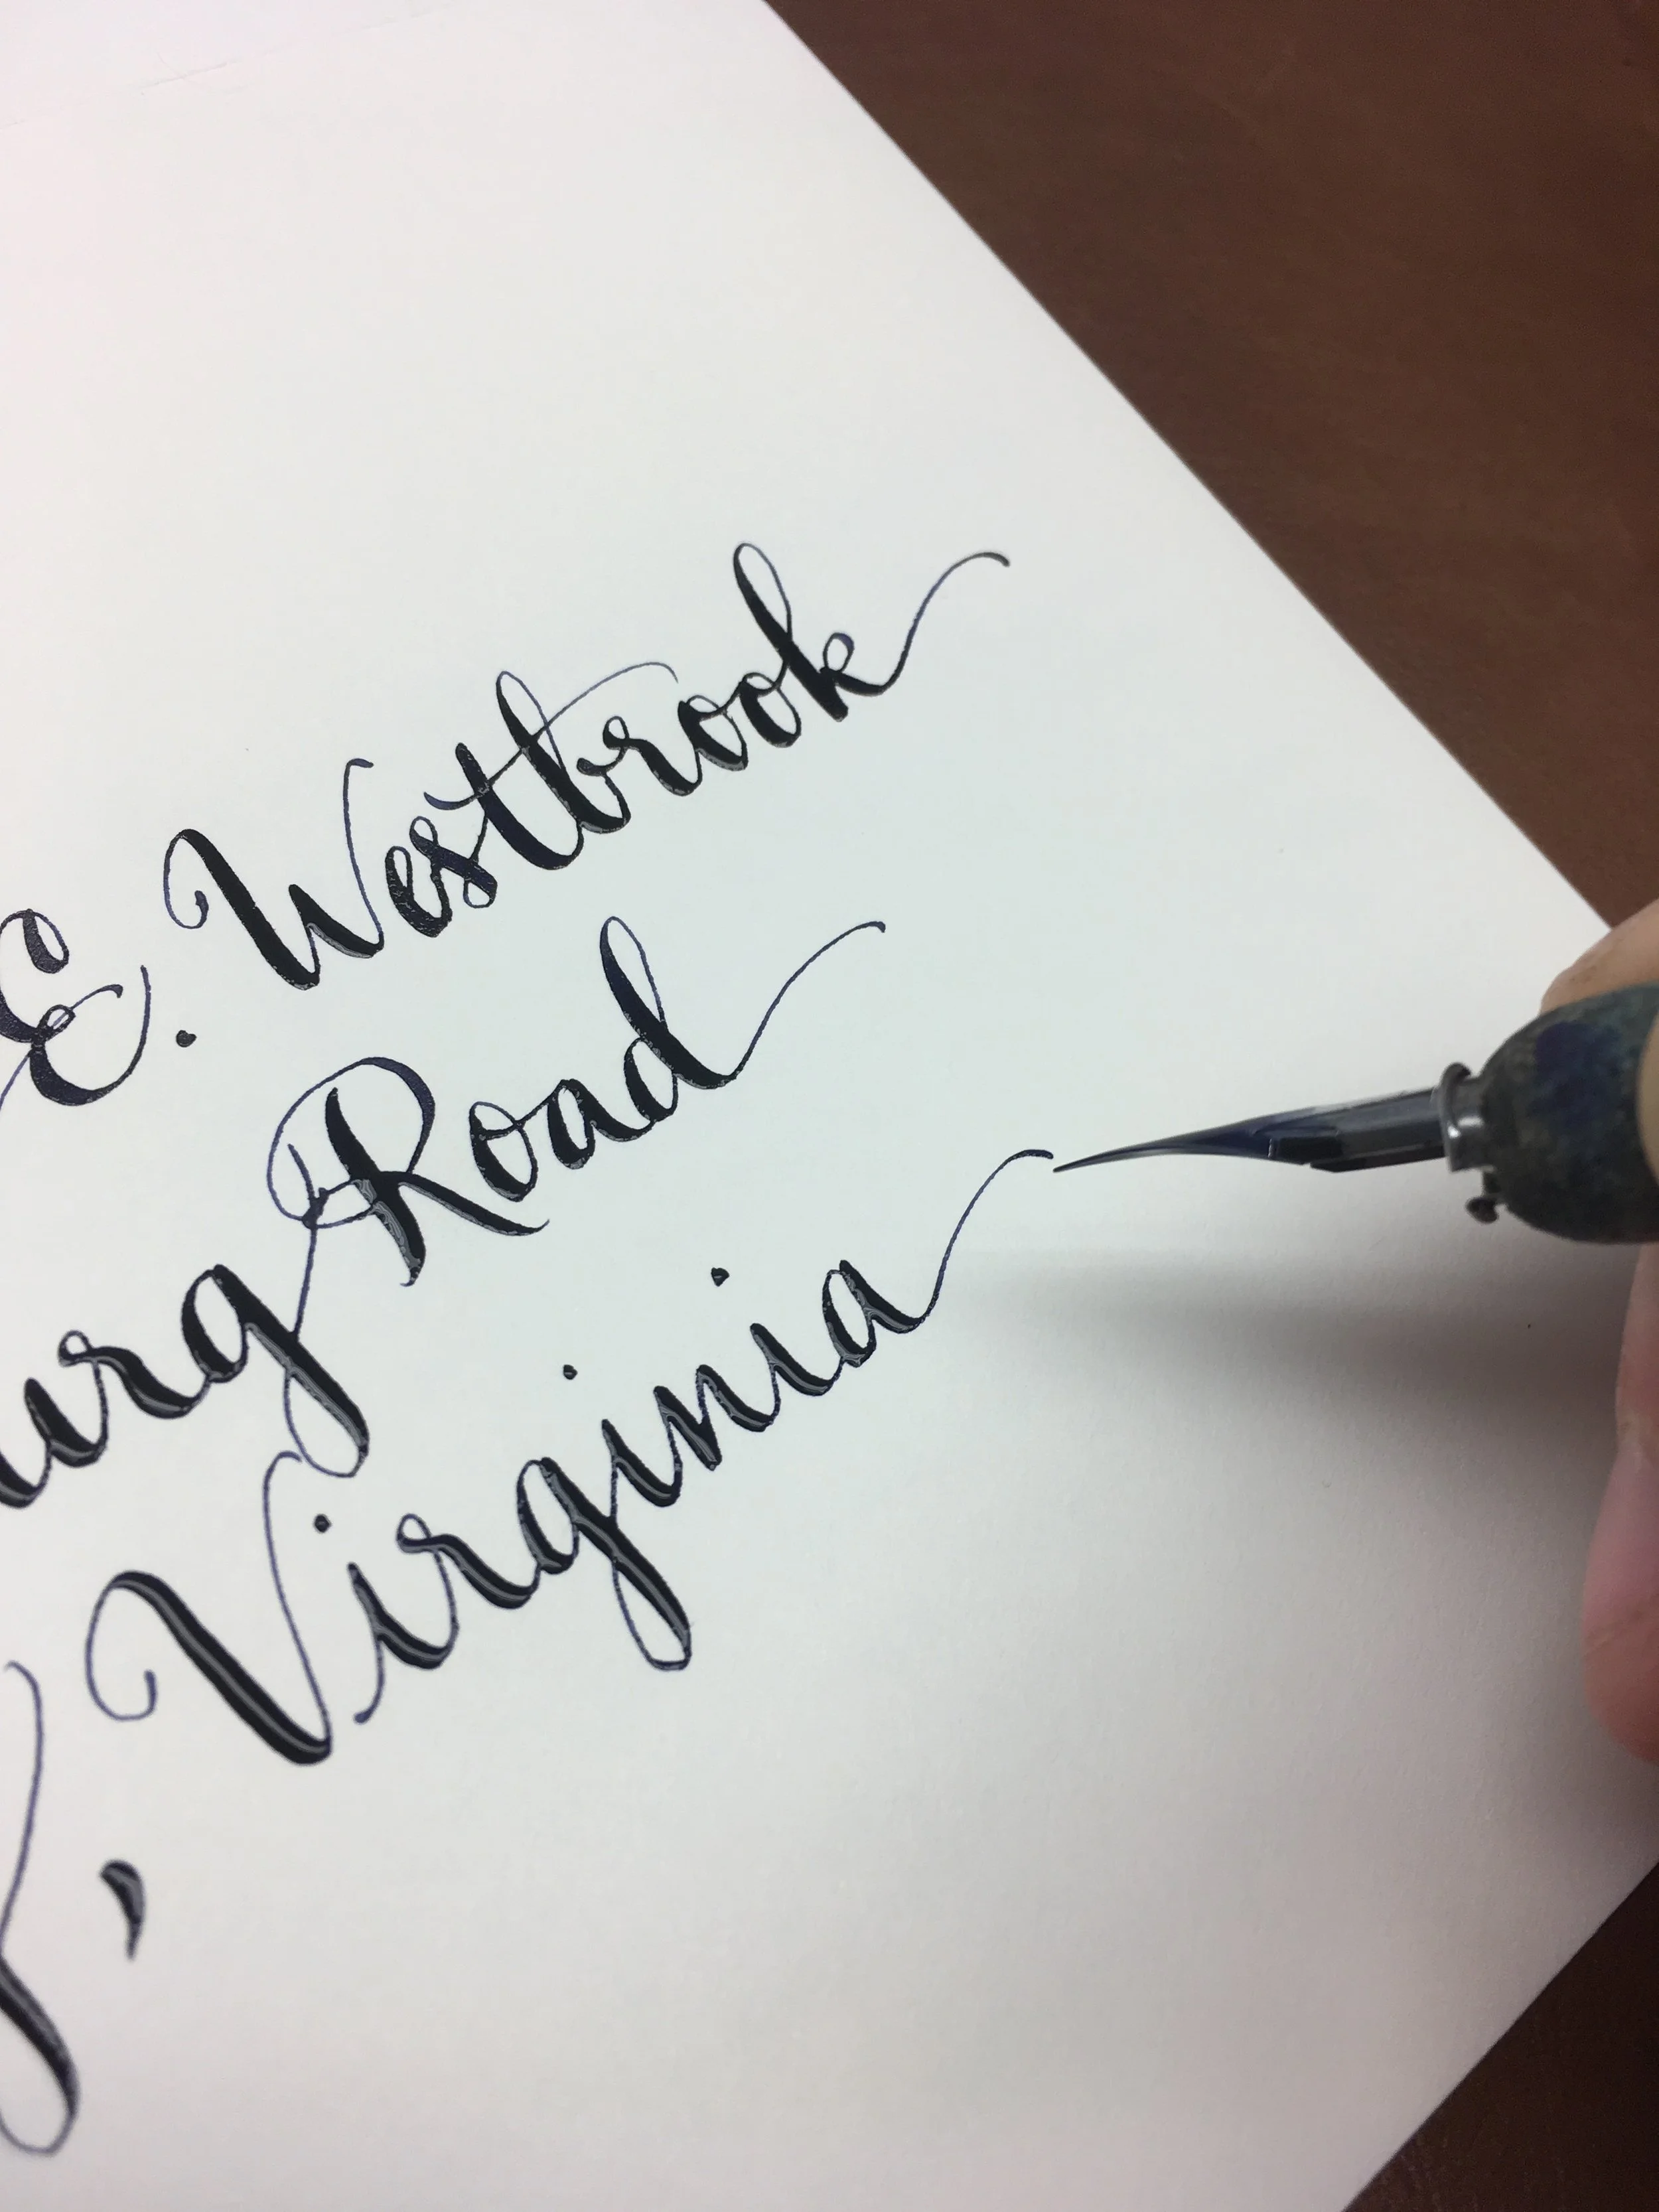 E. Westbrook
urg Road
, Virginia